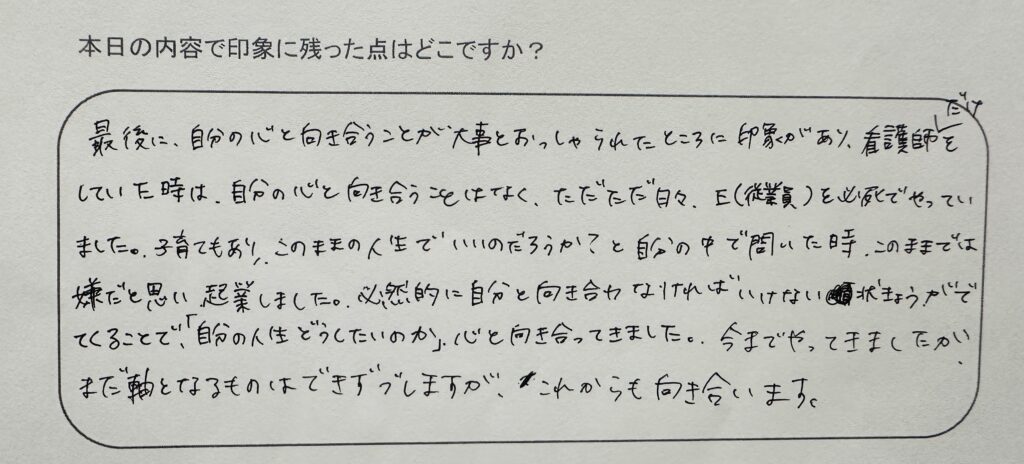 本日の内容で印象に残った点はどこですか？
最後に、自分の心と向き合うことが大事とおっしゃられたところに印象があり、看護師だけを
していた時は、自分の心と向き合うことはなく、ただただ日々、E(従業員)を必死でやってい
ました。子育てもあり、このままの人生でいいのだろうか？と自分の中で問いた時、このままでは
嫌だと思い、起業しました。必然的に自分と向き合わなければいけない状きょうがで
てくることで、「自分の人生どうしたいのか」、心と向き合ってきました。今までやってきましたが、
まだ軸となるものはできずしますが、これからも向き合います。